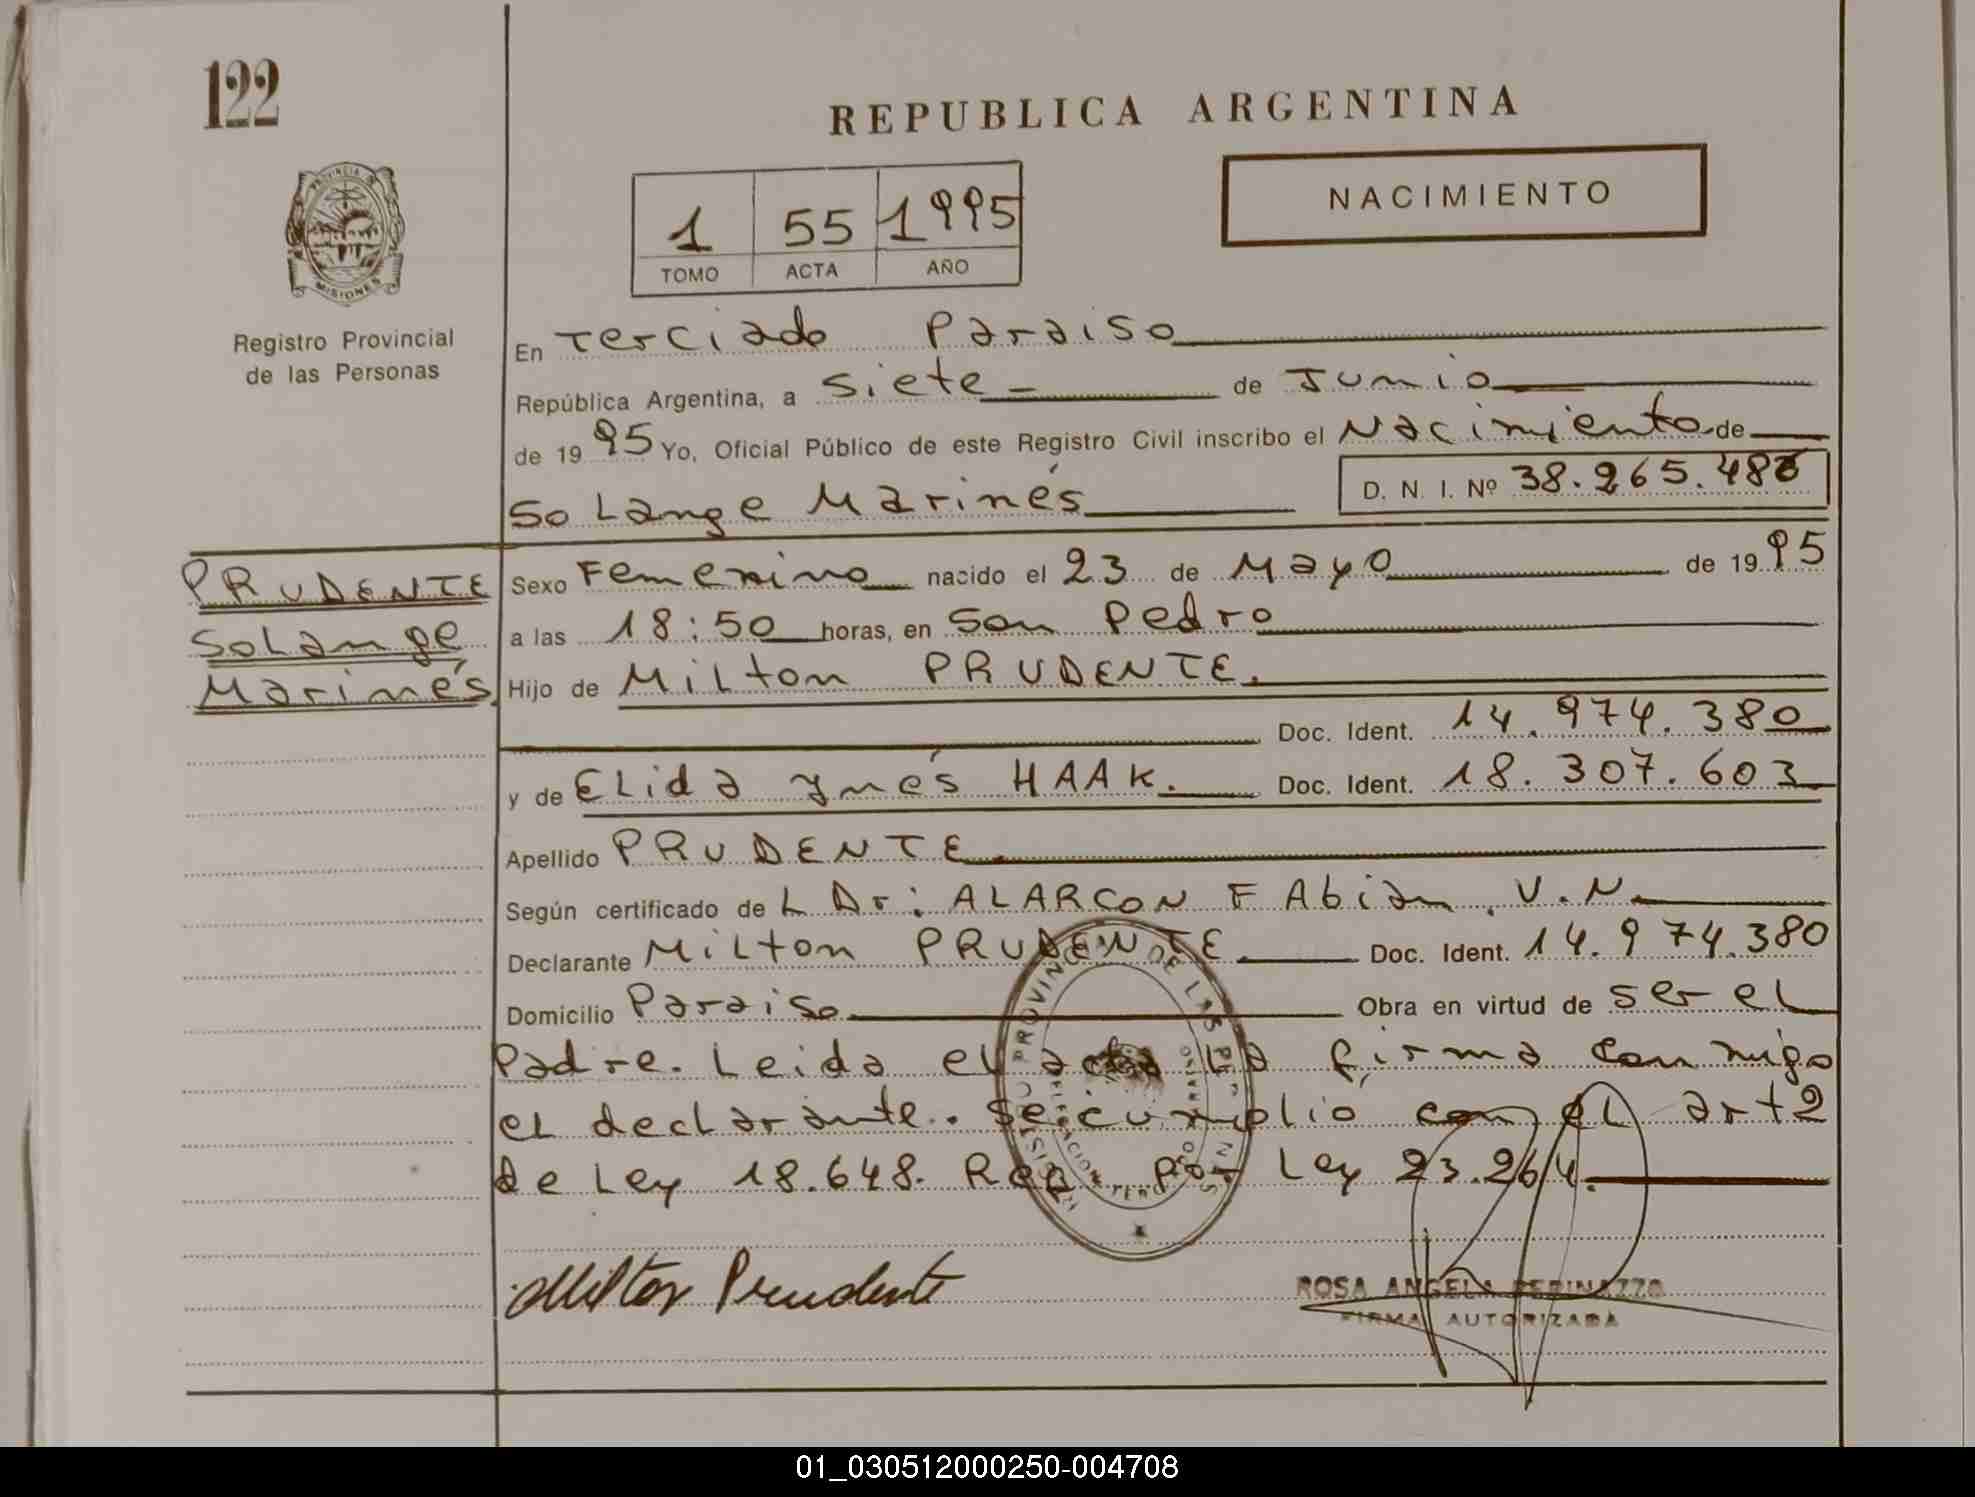 122
REPUBLICA ARGENTINA
NACIMIENTO
1 55 1995
TOMO ACTA AÑO
PROVINCIA DE
MISIONES
Registro Provincial
de las Personas
En Terciado Paraiso
República Argentina, a siete de Junio
de 1995 Yo, Oficial Público de este Registro Civil inscribo el Nacimiento de
Solange Marinés D. N. I. Nº 38.265.486
PRUDENTE
Solange
Marinés.
Sexo Femenino nacido el 23 de Mayo de 1995
a las 18:50 horas, en San Pedro
Hijo de Milton PRUDENTE.
Doc. Ident. 14.974.380
y de Elida Ynés HAAK. Doc. Ident. 18.307.603
Apellido PRUDENTE.
Según certificado de L Dr: ALARCON FAbian. V.N.
Declarante Milton PRUDENTE. Doc. Ident. 14.974.380
Domicilio Paraiso Obra en virtud de ser el
Padre. Leida el acta la firma conmigo
el declarante. Se cumplio con el art 2
de Ley 18.648. Reg. por Ley 23.264.
Milton Prudente
ROSA ANGELA PERINAZZO
FIRMA AUTORIZADA
01_030512000250-004708